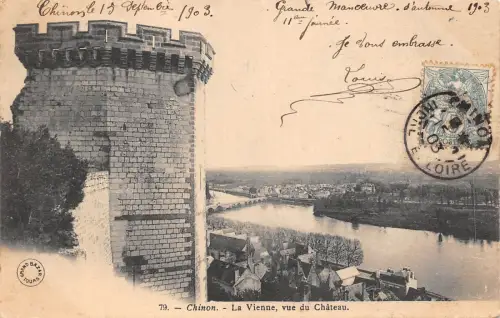 Chinon, le 15 Septembre 1903.
Grande Manœuvre d'automne 1903
11e journée.
Je vous embrasse.
Louis
CHINON
INDRE
03
LOIRE
GRAND BAZAR
TOURS
79. - Chinon. - La Vienne, vue du Château.